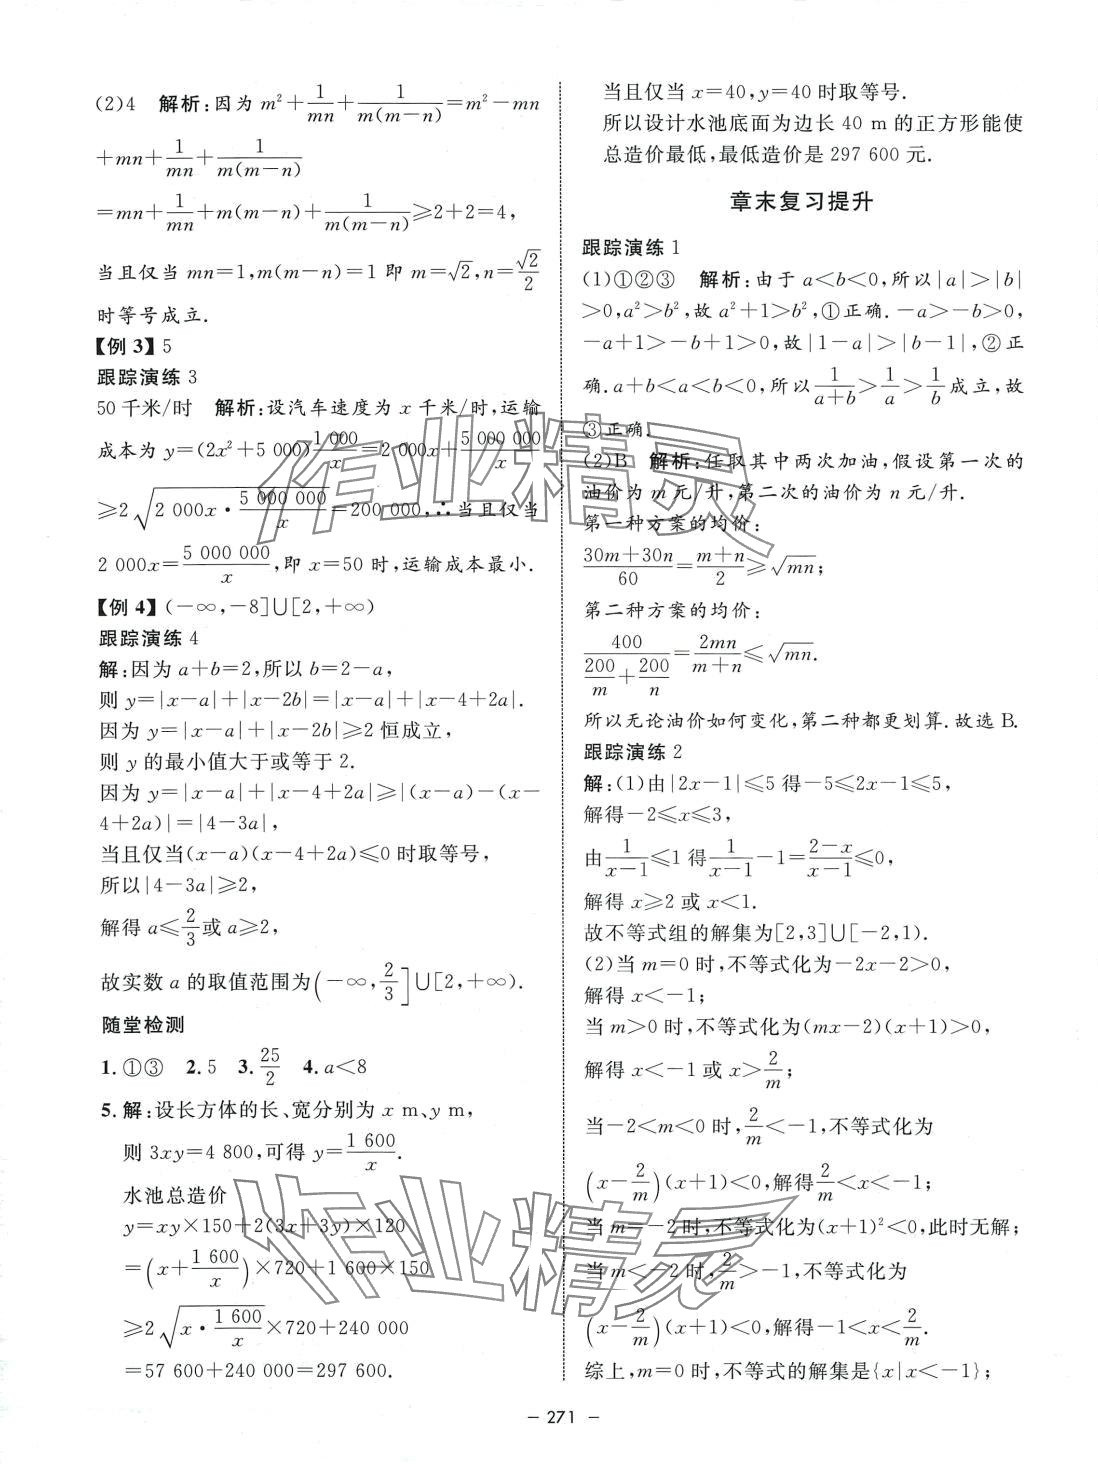 (2)4 解析:因为 m²+1/mn+1/m(m−n)=m²−mn
+mn+1/mn+1/m(m−n)
=mn+1/mn+m(m−n)+1/m(m−n)≥2+2=4,
当且仅当 mn=1,m(m−n)=1 即 m=√2,n=√2/2
时等号成立.
【例 3】5
跟踪演练 3
50 千米/时 解析:设汽车速度为 x 千米/时,运输
成本为 y=(2x²+5 000)1 000/x=2 000x+5 000 000/x
≥2√(2 000x·5 000 000/x)=200 000,∴当且仅当
2 000x=5 000 000/x,即 x=50 时,运输成本最小.
【例 4】(−∞,−8]∪[2,+∞)
跟踪演练 4
解:因为 a+b=2,所以 b=2−a,
则 y=|x−a|+|x−2b|=|x−a|+|x−4+2a|.
因为 y=|x−a|+|x−2b|≥2 恒成立,
则 y 的最小值大于或等于 2.
因为 y=|x−a|+|x−4+2a|≥|(x−a)−(x−
4+2a)|=|4−3a|,
当且仅当(x−a)(x−4+2a)≤0 时取等号,
所以|4−3a|≥2,
解得 a≤2/3或 a≥2,
故实数 a 的取值范围为(−∞,2/3]∪[2,+∞).
随堂检测
1. ①③ 2. 5 3. 25/2 4. a<8
5. 解:设长方体的长、宽分别为 x m、y m,
则 3xy=4 800,可得 y=1 600/x.
水池总造价
y=xy×150+2(3x+3y)×120
=(x+1 600/x)×720+1 600×150
≥2√(x·1 600/x)×720+240 000
=57 600+240 000=297 600.
当且仅当 x=40,y=40 时取等号.
所以设计水池底面为边长 40 m 的正方形能使
总造价最低,最低造价是 297 600 元.
章末复习提升
跟踪演练 1
(1)①②③ 解析:由于 a<b<0,所以|a|>|b|
>0,a²>b²,故 a²+1>b²,①正确.−a>−b>0,
−a+1>−b+1>0,故|1−a|>|b−1|,②正
确.a+b<a<b<0,所以1/(a+b)>1/a>1/b成立,故
③正确.
(2)B 解析:任取其中两次加油,假设第一次的
油价为 m 元/升,第二次的油价为 n 元/升.
第一种方案的均价:
(30m+30n)/60=(m+n)/2≥√mn;
第二种方案的均价:
400/(200/m+200/n)=2mn/(m+n)≤√mn.
所以无论油价如何变化,第二种都更划算.故选 B.
跟踪演练 2
解:(1)由|2x−1|≤5 得−5≤2x−1≤5,
解得−2≤x≤3,
由1/(x−1)≤1 得1/(x−1)−1=(2−x)/(x−1)≤0,
解得 x≥2 或 x<1.
故不等式组的解集为[2,3]∪[−2,1).
(2)当 m=0 时,不等式化为−2x−2>0,
解得 x<−1;
当 m>0 时,不等式化为(mx−2)(x+1)>0,
解得 x<−1 或 x>2/m;
当−2<m<0 时,2/m<−1,不等式化为
(x−2/m)(x+1)<0,解得2/m<x<−1;
当 m=−2 时,不等式化为(x+1)²<0,此时无解;
当 m<−2 时,2/m>−1,不等式化为
(x−2/m)(x+1)<0,解得−1<x<2/m.
综上,m=0 时,不等式的解集是{x|x<−1};
作业精灵
作业精灵
− 271 −